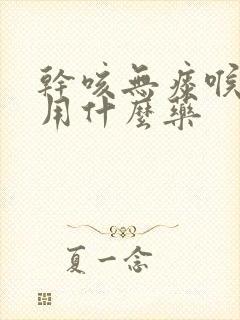 幹咳無痰喉
用什麼藥
夏一念